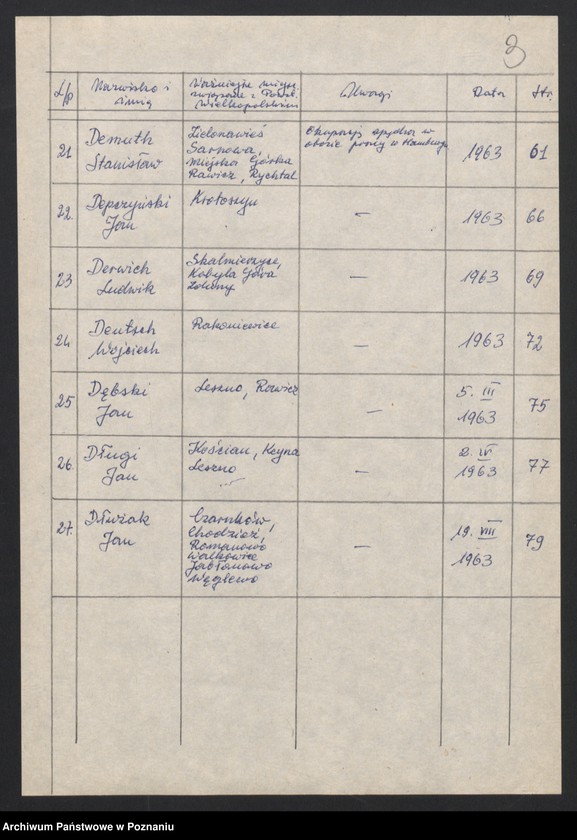 3
L/p Nazwisko i imię Ważniejsze miejsc. związane z Powst. Wielkopolskim Uwagi Data Str.
21 Demuth Stanisław Zielonawieś Sarnowa, Miejska Górka Rawicz, Rychtal Okupację spędza w obozie pracy w Hamburgu 1963 61
22. Depczyński Jan Krotoszyn — 1963 66
23 Derwich Ludwik Skalmierzyce, Kobyla Góra — 1963 69
24 Deutsch Wojciech Rakoniewice — 1963 72
25 Dębski Jan Leszno, Rawicz — 5. III 1963 75
26. Długi Jan Kościan, Kcynia Leszno — 2. IV 1963 77
27. Dłużak Jan Czarnków, Chodzież, Romanowo Walkowice Jabłonowo Węglewo — 19. VIII 1963 79
Archiwum Państwowe w Poznaniu